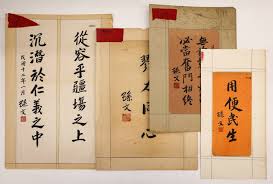 從容乎疆場之上
沉潛於仁義之中
民國十三年一月
孫文
同心
孫文
奮鬥
孫文
用便民生
孫文